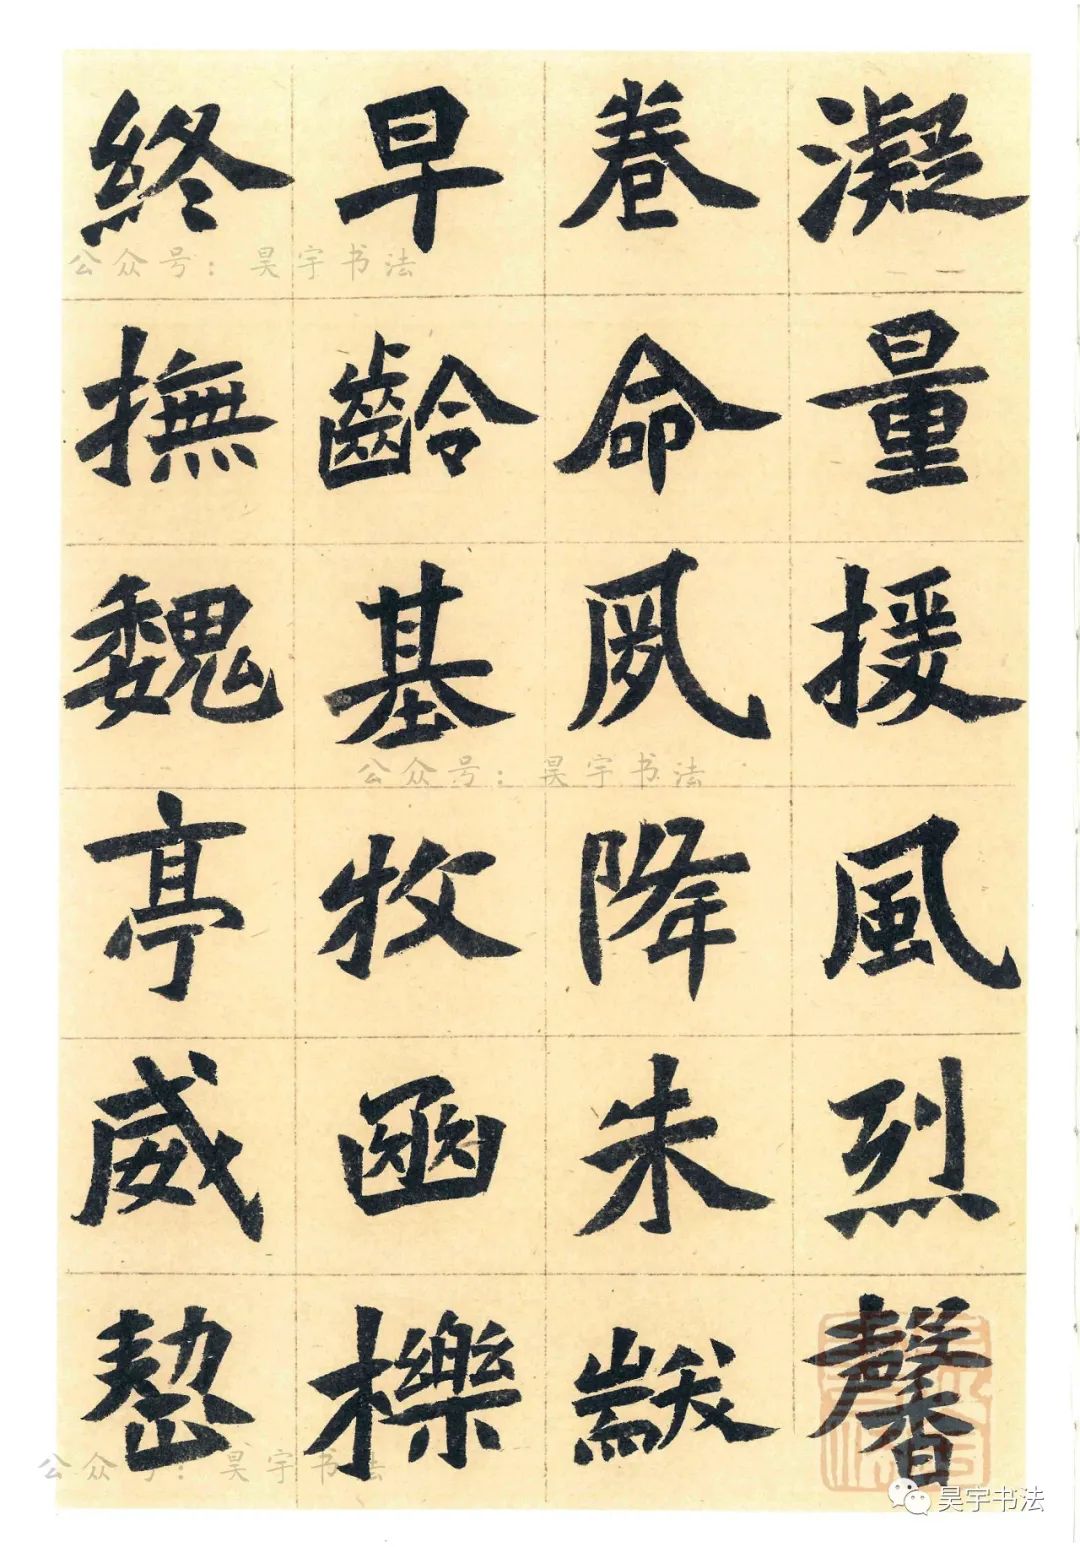 凝量援風烈馨
眷命夙降朱黻
早齡基牧函櫟
終撫魏亭威
公众号：昊宇书法
公众号：昊宇书法
公众号：昊宇书法
昊宇书法